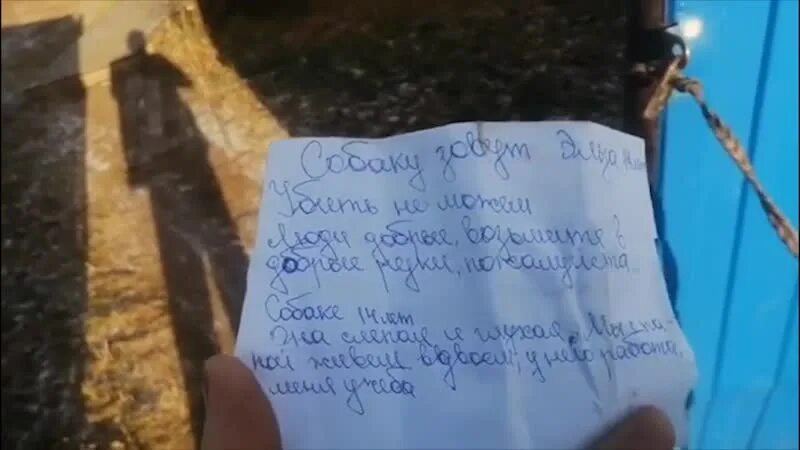 Собаку зовут Эльза 14 лет
Убить не можем
Люди добрые, возьмите в
добрые руки, пожалуйста...
Собаке 14 лет
Она слепая и глухая. Мы с па-
пой живём вдвоём, у него работа,
меня учеба